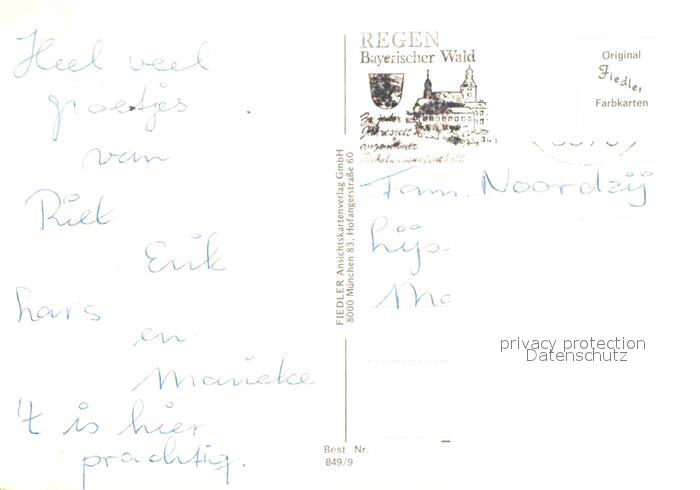 Heel veel
groetjes
van
Riet
Erik
hars
en
Marieke
't is hier
prachtig.
REGEN
Bayerischer Wald
Zu jeder
Jahreszeit
angenehmer
Original
Fiedler
Farbkarten
FIEDLER Ansichtskartenverlag GmbH
8000 München 83, Hofangerstraße 60
Fam. Noordzij
privacy protection
Datenschutz
Best Nr.
849/9